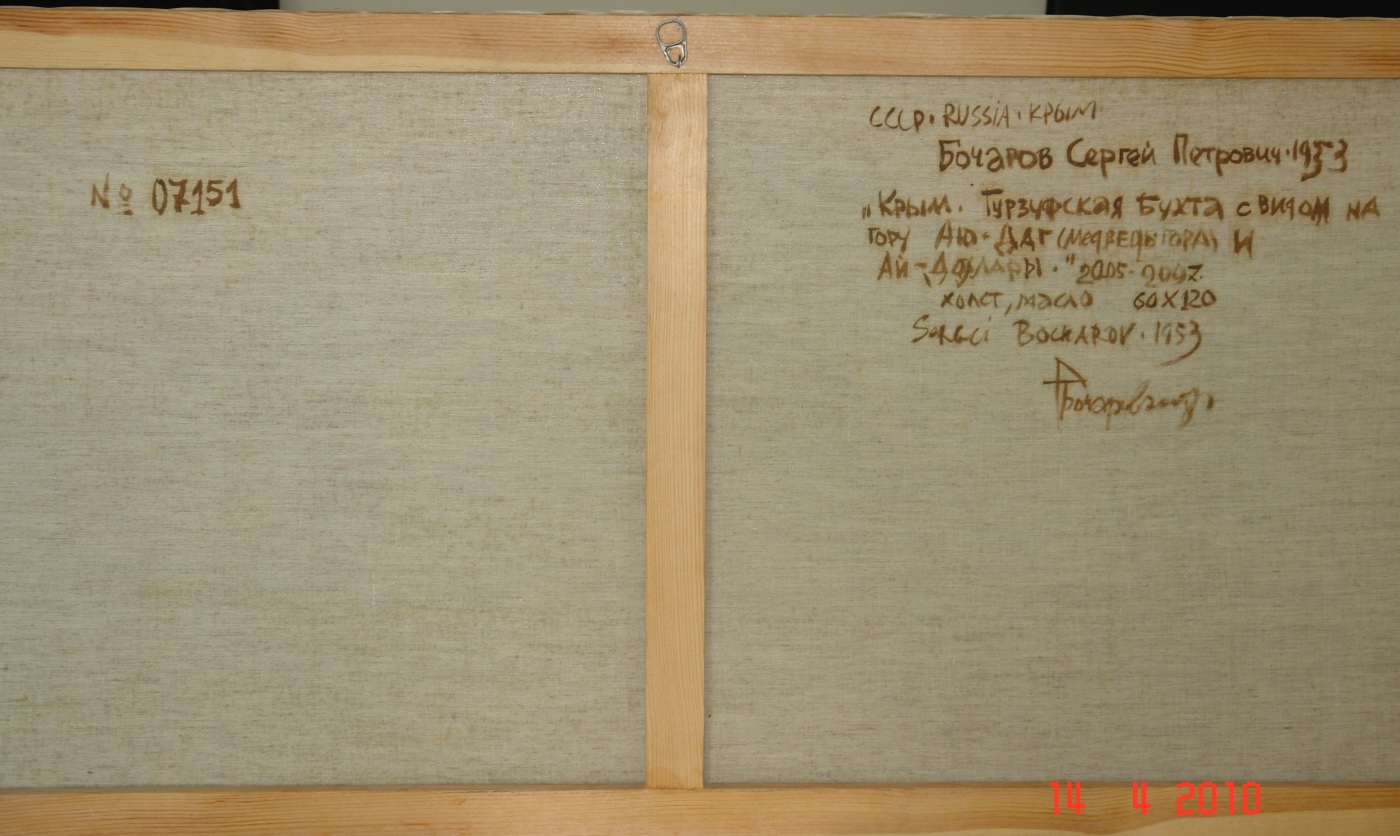 № 07151
СССР. RUSSIA. КРЫМ
Бочаров Сергей Петрович. 1953
„Крым. Гурзуфская Бухта с видом на
гору Аю-Даг (Медведь гора) и
Ай-Долары." 2005-2007.
холст, масло 60X120
Sergei BOCHAROV. 1953
14 4 2010